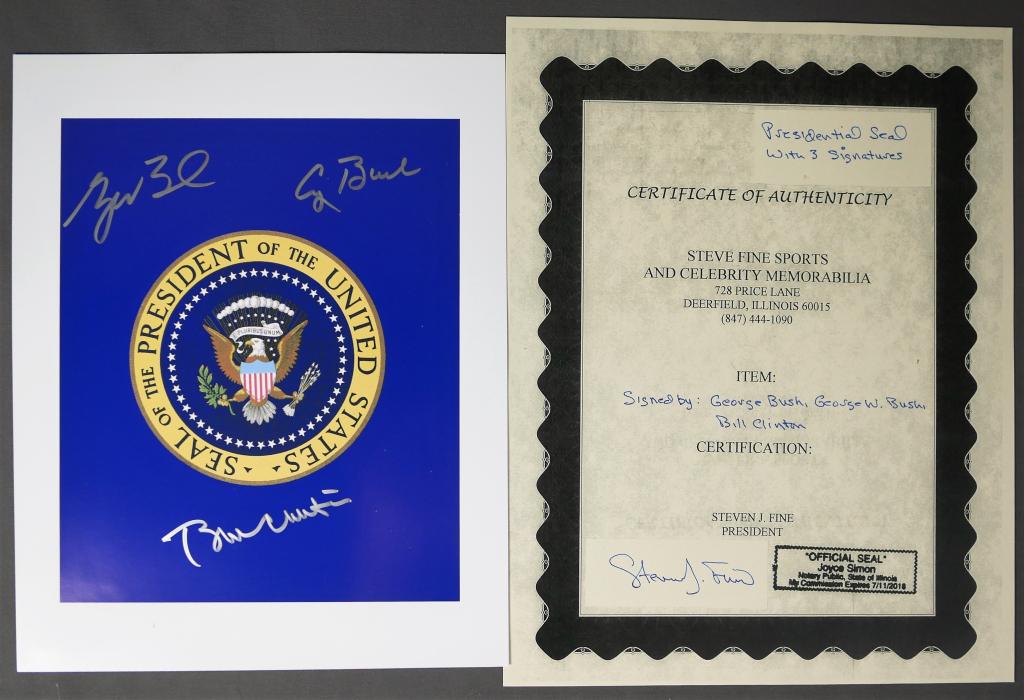 SEAL OF THE PRESIDENT OF THE UNITED STATES
PLURIBUS UNUM
Bill Clinton
Presidential Seal
With 3 Signatures
CERTIFICATE OF AUTHENTICITY
STEVE FINE SPORTS
AND CELEBRITY MEMORABILIA
728 PRICE LANE
DEERFIELD, ILLINOIS 60015
(847) 444-1090
ITEM:
Signed by: George Bush, George W. Bush,
Bill Clinton
CERTIFICATION:
STEVEN J. FINE
PRESIDENT
Steven J. Fine
"OFFICIAL SEAL"
Joyce Simon
Notary Public, State of Illinois
My Commission Expires 7/11/2018